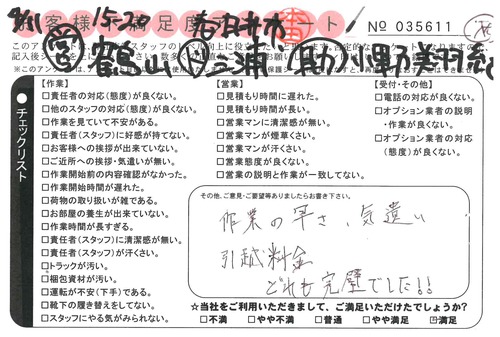 9/11 15-20 春日井市
お客様満足度アンケート
No 035611
鶴山 三浦
チェックリスト
【作業】
□責任者の対応(態度)が良くない。
□他のスタッフの対応(態度)が良くない。
□作業を見ていて不安がある。
□責任者(スタッフ)に好感が持てない。
□お客様への挨拶が出来ていない。
□ご近所への挨拶・気遣いが無い。
□作業開始前の内容確認がなかった。
□作業開始時間が遅れた。
□荷物の取り扱いが雑である。
□お部屋の養生が出来ていない。
□作業時間が長すぎる。
□責任者(スタッフ)に清潔感が無い。
□責任者(スタッフ)が汗くさい。
□トラックが汚い。
□梱包資材が汚い。
□運転が不安(下手)である。
□靴下の履き替えをしてない。
□スタッフにやる気がみられない。
【営業】
□見積もり時間に遅れた。
□見積もり時間が長い。
□営業マンに清潔感が無い。
□営業マンが煙草くさい。
□営業マンが汗くさい。
□営業態度が良くない。
□営業の説明と作業が違う。
□営業マンの説明が良くない。
【受付・その他】
□電話の対応が良くない。
□オプション業者の説明・作業が良くない。
□オプション業者の対応(態度)が良くない。
その他、ご意見・ご要望等ありましたらお書き下さい。
作業の早さ、気遣い
引越料金
どれも完璧でした!!
☆当社をご利用いただきまして、ご満足いただけたでしょうか?
□不満 □やや不満 □普通 □やや満足 ☑満足